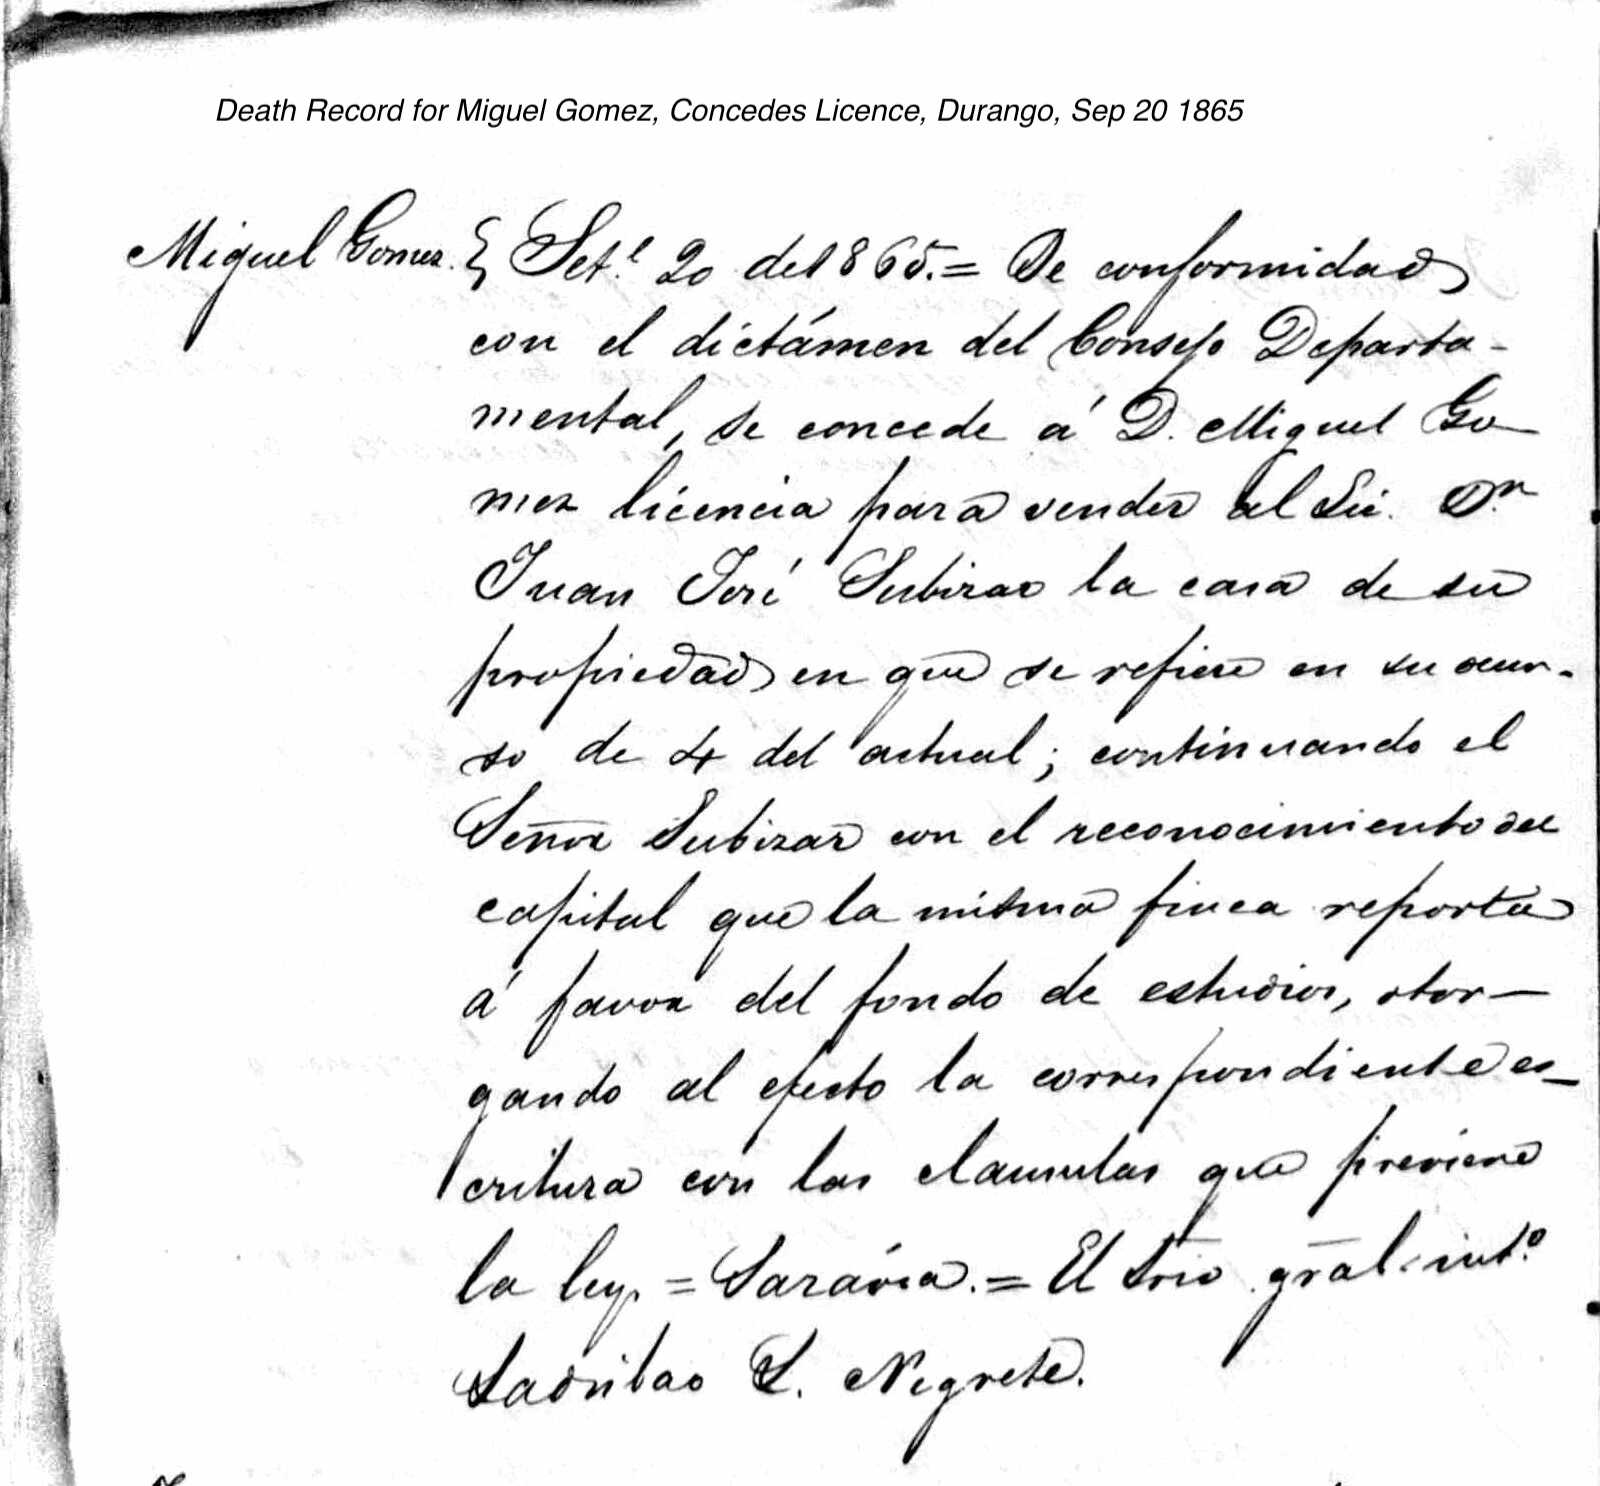 Death Record for Miguel Gomez, Concedes Licence, Durango, Sep 20 1865
Miguel Gomez. { Set.e 20 de 1865.= De conformidad
con el dictámen del Consejo Departa-
mental, se concede á D. Miguel Go-
mez licencia para vender al Lic. Dn.
Juan José Subizar la casa de su
propiedad en que se refiere en su ocur-
so de 4 del actual; continuando el
Señor Subizar con el reconocimiento del
capital que la misma finca reporta
á favor del fondo de estudios, otor-
gando al efecto la correspondiente es-
critura con las clausulas que previene
la ley. = Saravia. = El Srio gral. int.o
L. Negrete.